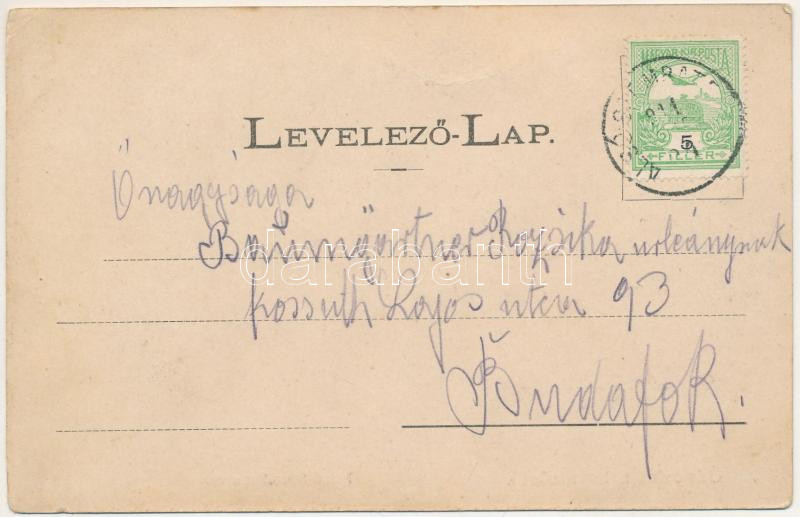 MAGYAR KIR. POSTA
5
FILLÉR
LEVELEZŐ-LAP.
Őnagysága
Baumgartner Rozsika urleánynak
darabanth
Kossuth Lajos utca 93
Budafok.